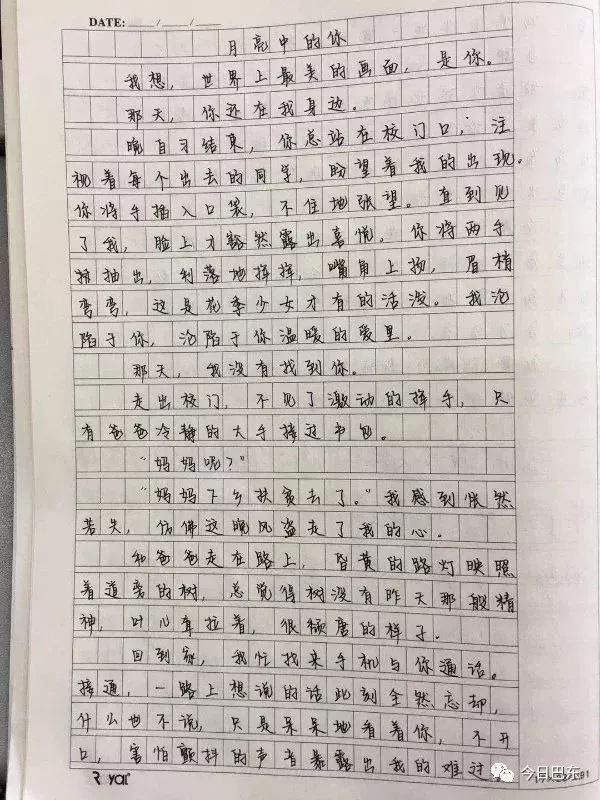 DATE: / /
月亮中的你
我想，世界上最美的画面，是你。
那天，你还在我身边。
晚自习结束，你总站在校门口，注
视着每个出去的同学，盼望着我的出现。
你将手插入口袋，不住地张望。直到见
了我，脸上才豁然露出喜悦。你将两手
抽出，利落地挥挥，嘴角上扬，眉梢
弯弯，这是花季少女才有的活泼。我沦
陷于你，沦陷于你温暖的爱里。
那天，我没有找到你。
走出校门，不见了激动的挥手，只
有爸爸冷静的大手接过书包。
“妈妈呢？”
“妈妈下乡扶贫去了。”我感到怅然
若失，仿佛这晚风盗走了我的心。
和爸爸走在路上，昏黄的路灯映照
着道旁的树，总觉得树没有昨天那般精
神，叶儿耷拉着，很颓唐的样子。
回到家，我忙找来手机与你通话。
接通，一路上想说的话此刻全然忘却，
什么也不说，只是呆呆地看着你，不开
口，害怕颤抖的声音暴露出我的难过
今日巴东